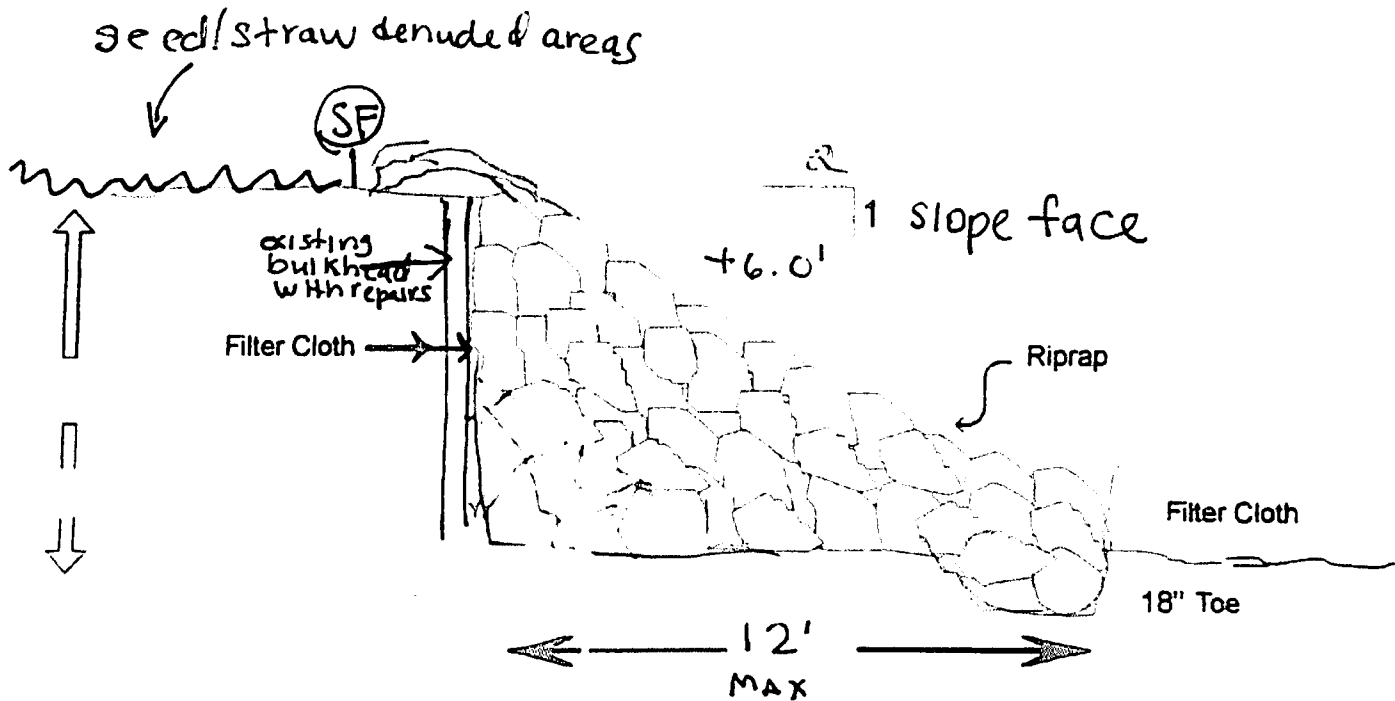 seed/straw denuded areas
SF
2
1 slope face
+6.0'
existing
bulkhead
with repairs
Filter Cloth
Riprap
Filter Cloth
18" Toe
12'
MAX